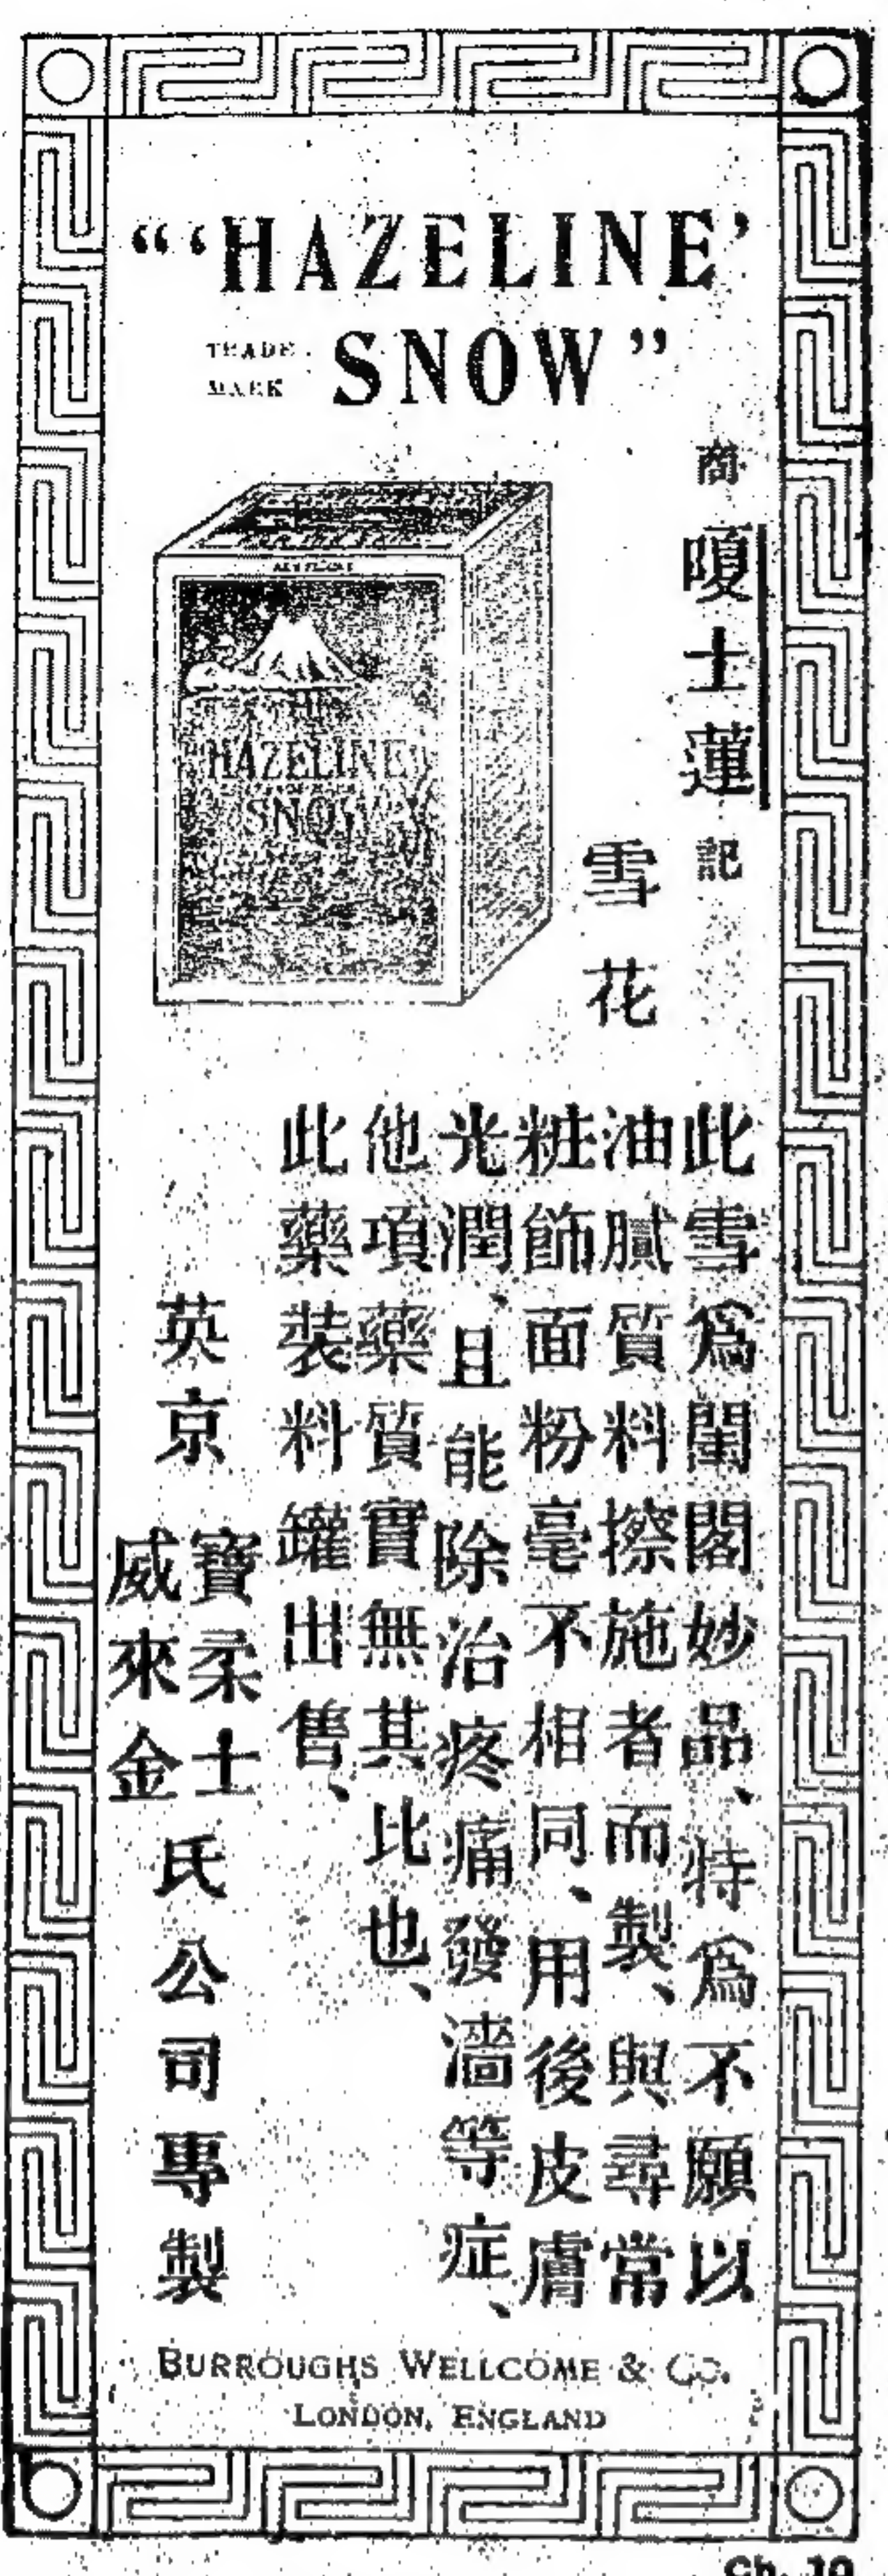 "'HAZELINE'
TRADE MARK SNOW"
HAZELINE
SNOW
商嗄士蓮記
雪花
此雪爲閨閣妙品、特爲不願以
油膩質料擦施者而製、與尋常
粧飾面粉毫不相同、用後皮膚
光潤、且能除治疼痛發濇等症、
他項藥質實無其比也、
此藥裝料罐出售、
英京
寶柔士
威來金
氏公司專製
BURROUGHS WELLCOME & Co.
LONDON, ENGLAND
Ch. 10